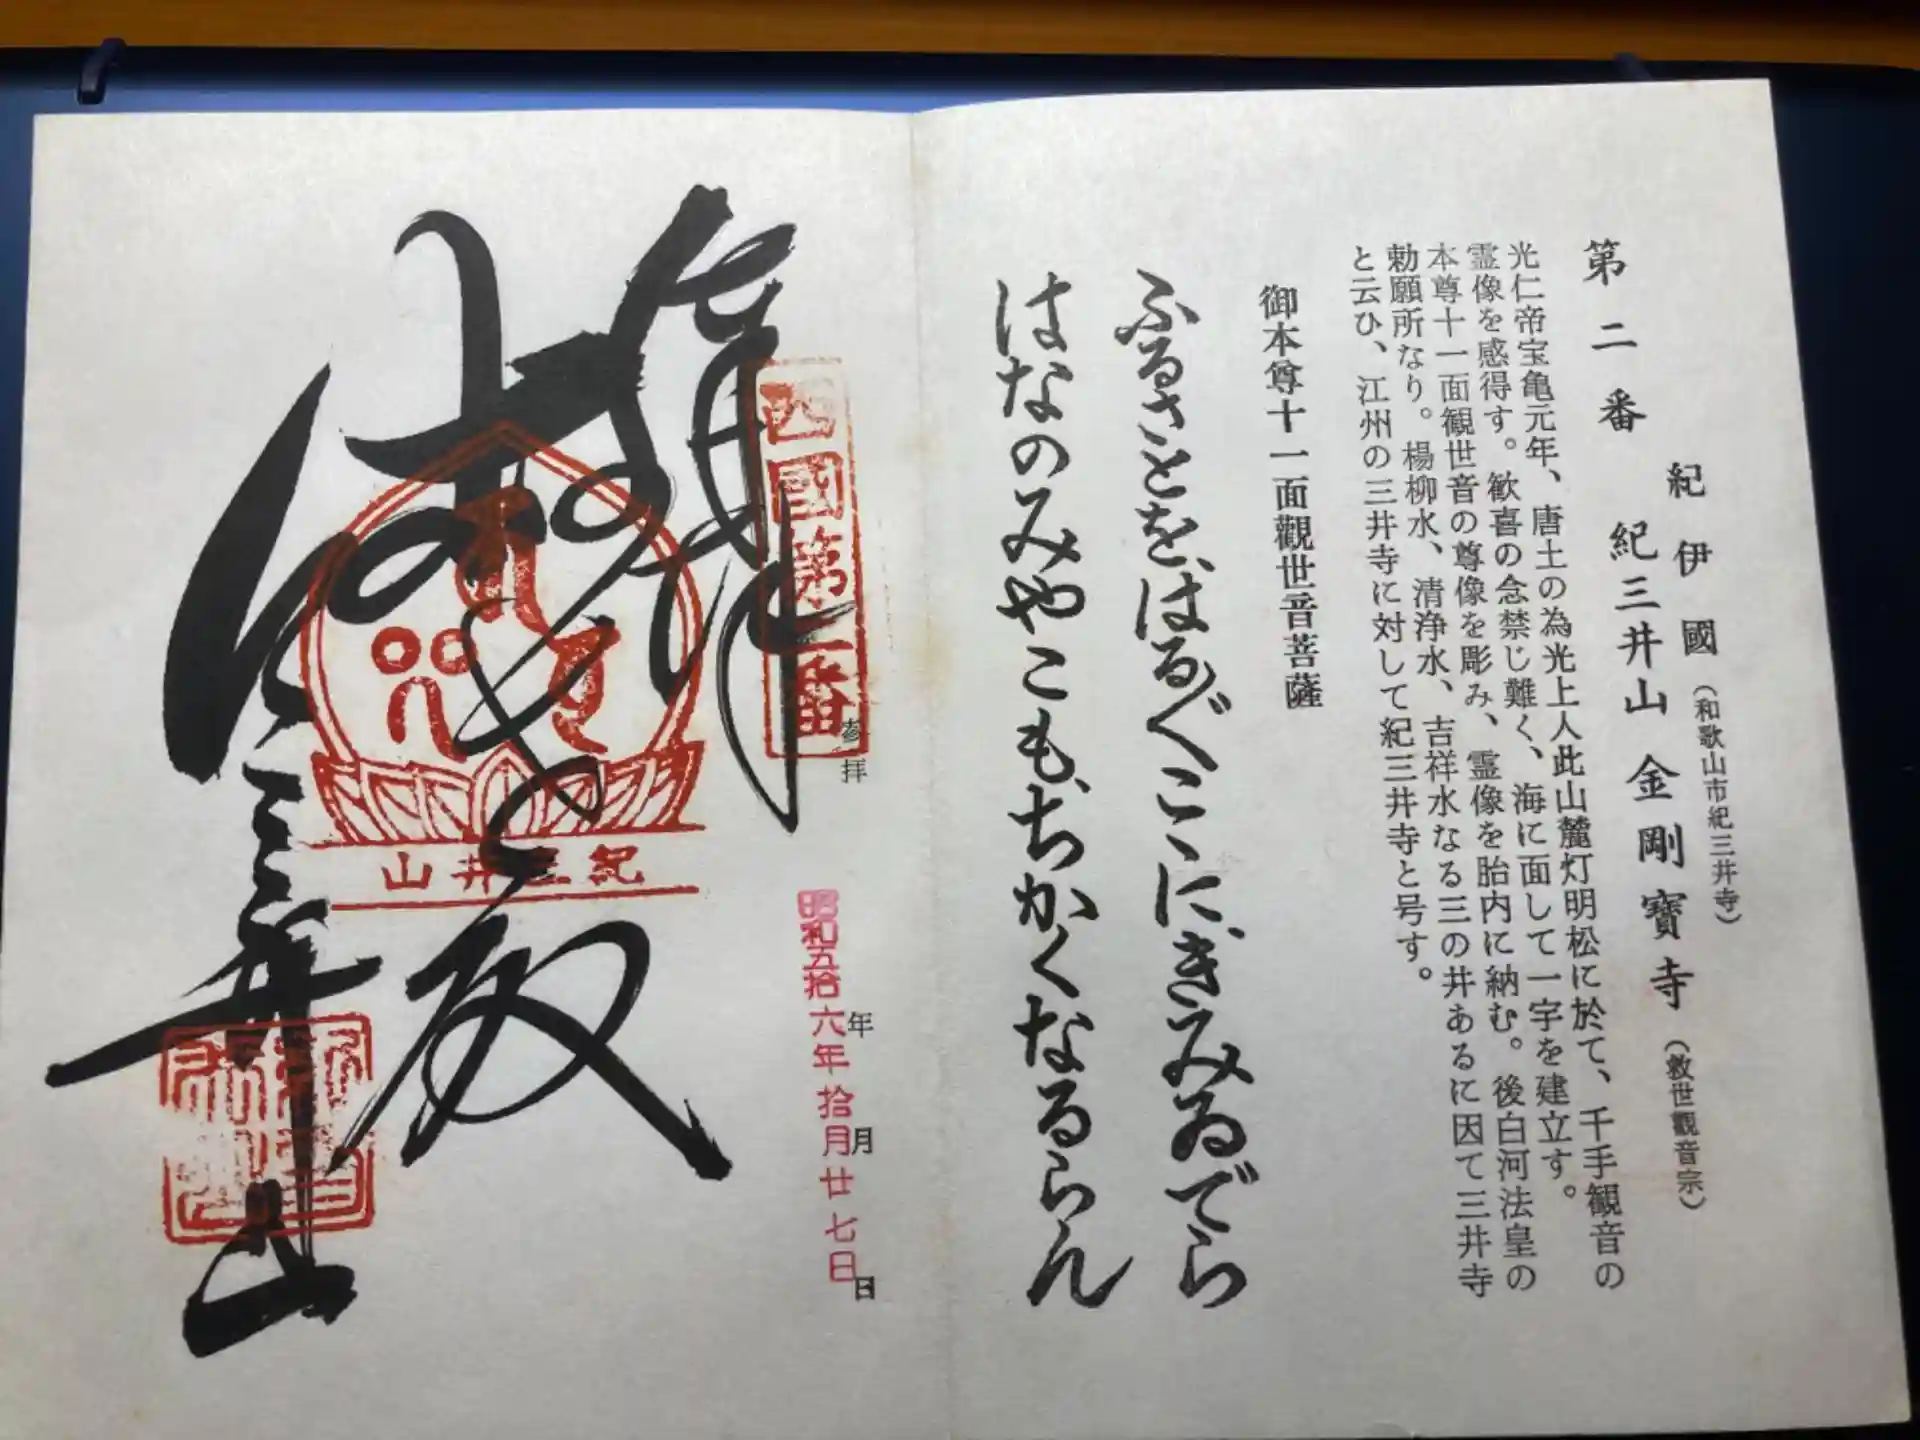 第二番
紀伊國（和歌山市紀三井寺）
紀三井山金剛寶寺（救世觀音宗）
光仁帝宝亀元年、唐土の為光上人此山麓灯明松に於て、千手観音の
霊像を感得す。歓喜の念禁じ難く、海に面して一宇を建立す。
本尊十一面観世音の尊像を彫み、霊像を胎内に納む。後白河法皇の
勅願所なり。楊柳水、清浄水、吉祥水なる三の井あるに因て三井寺
と云ひ、江州の三井寺に対して紀三井寺と号す。
御本尊十一面觀世音菩薩
ふるさとを、はる〴〵こゝに、きみゐでら
はなのみやこも、ちかくなるらん
西國第二番
参拝
昭和五拾六年拾月廿七日
年月日
紀三井山
殿
紀三井山